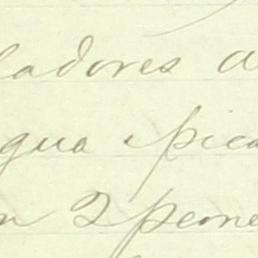 ladores a
gua epica
n 2 peone